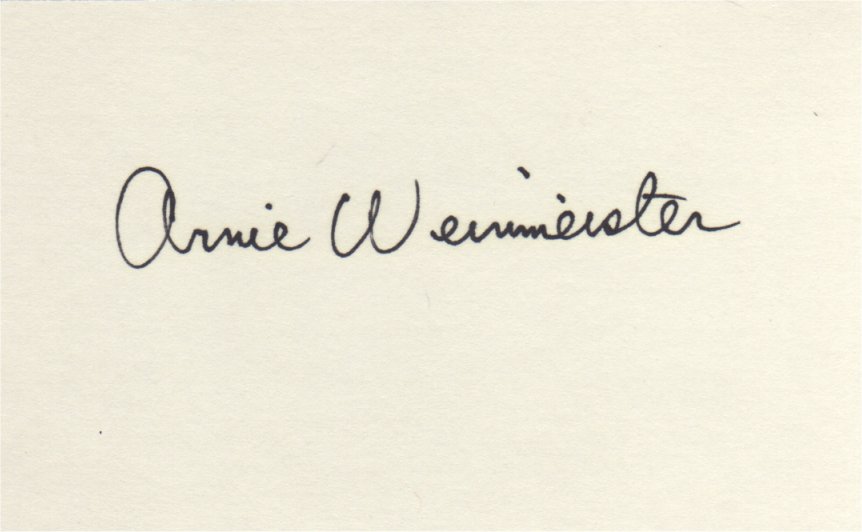 Arnie Weinmeister